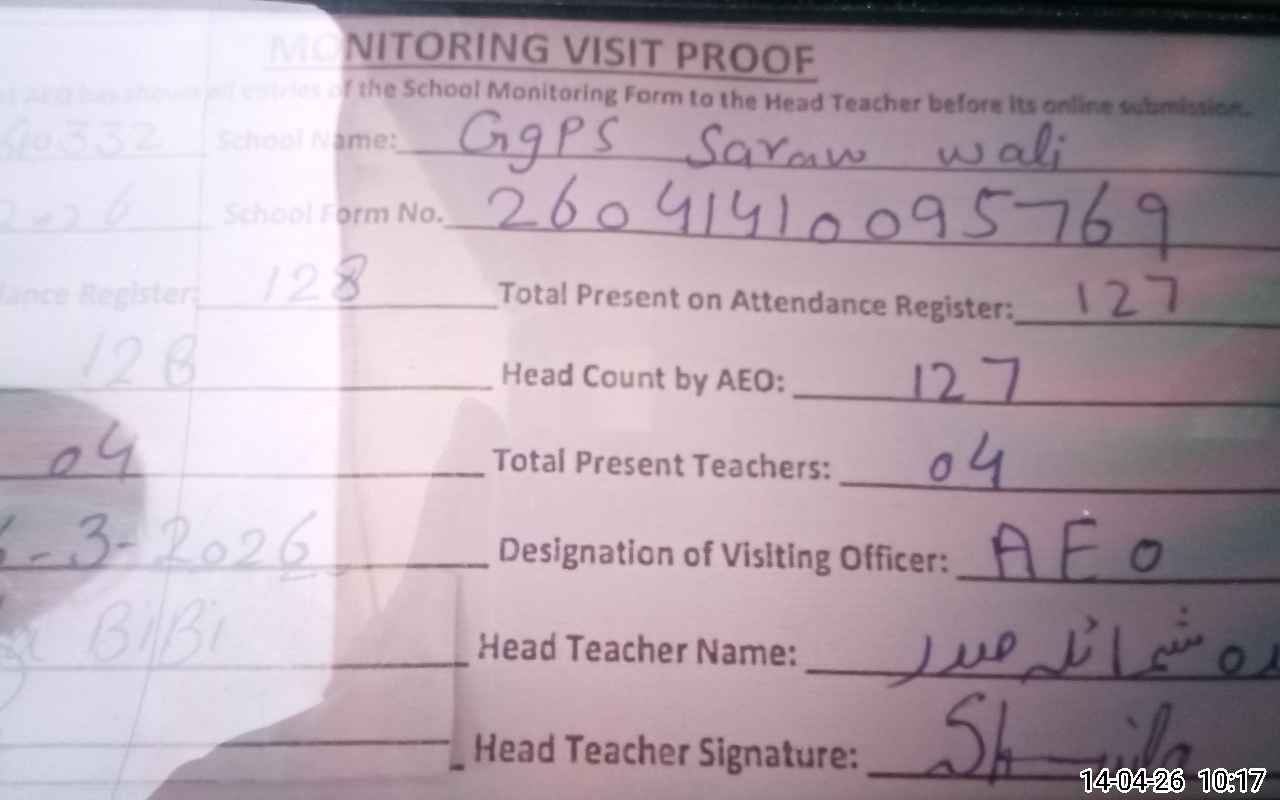 MONITORING VISIT PROOF
AEO has shown all entries of the School Monitoring Form to the Head Teacher before its online submission.
40332 School Name: GgPS Saraw wali
2-26 School Form No. 26041410095769
dance Register: 128 Total Present on Attendance Register: 127
128 Head Count by AEO: 127
04 Total Present Teachers: 04
-3-2026 Designation of Visiting Officer: AEO
BiBi Head Teacher Name: شمائلہ صدر
Head Teacher Signature:
14-04-26 10:17